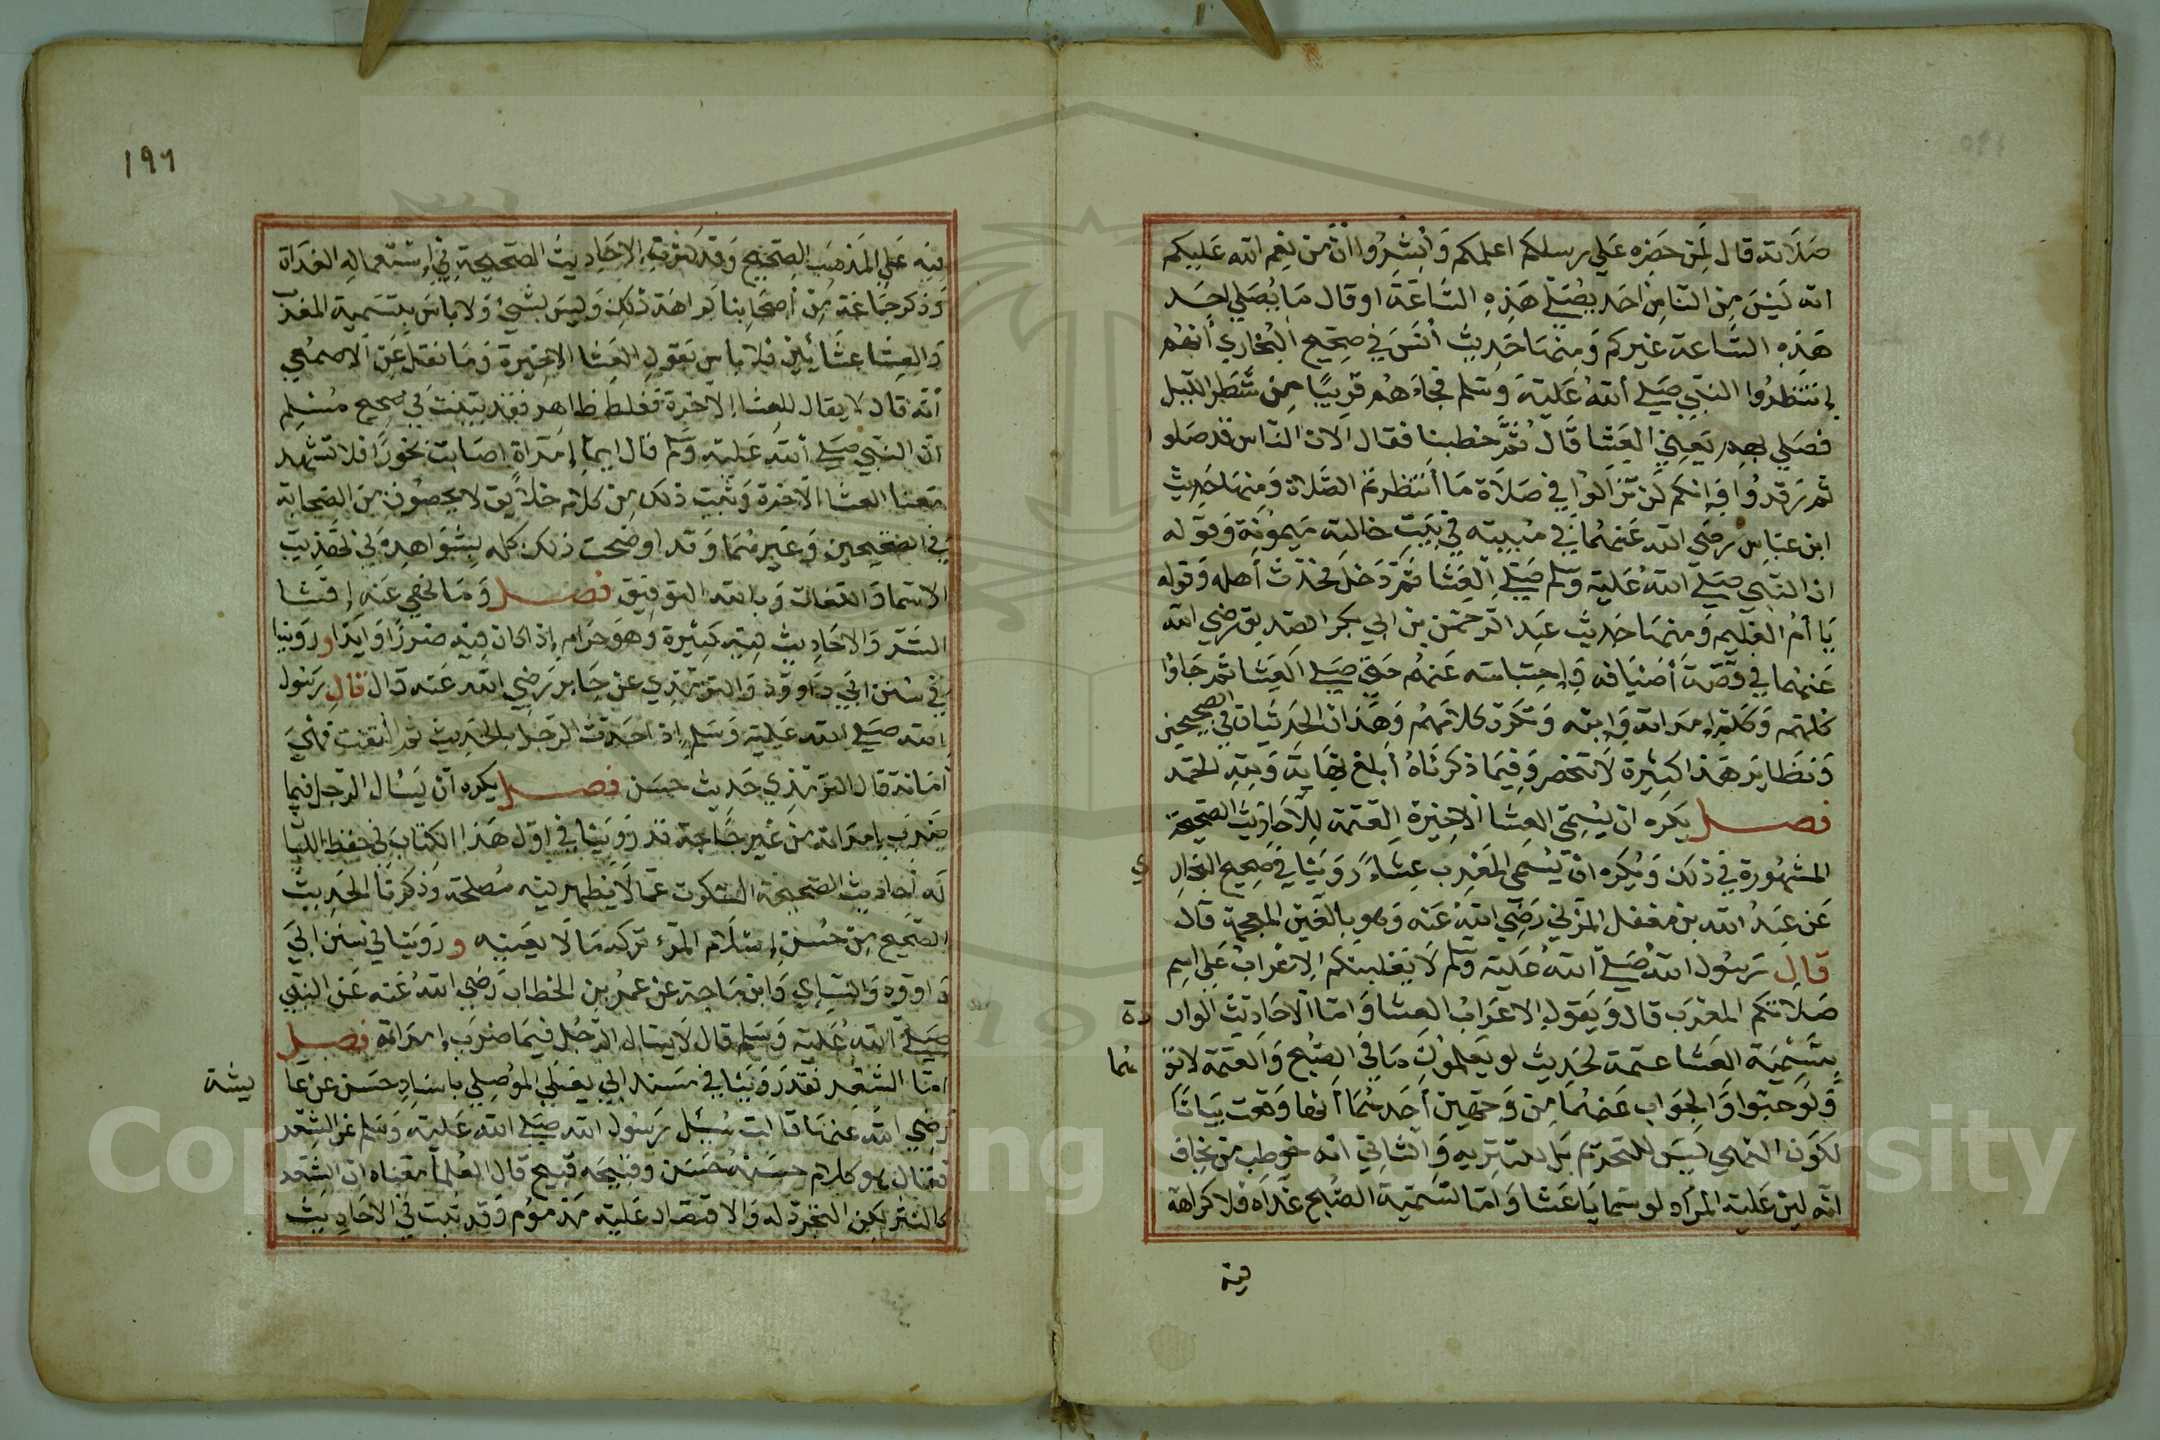 صلاته قال لمن حضره على رسلكم اعلمكم وابشروا ان من نعم الله عليكم
انه ليس من الناس احد يصلي هذه الساعة او قال ما يصلي احد
هذه الساعة غيركم ومنها حديث أنس في صحيح البخاري أنهم
إنتظروا النبي صلى الله عليه وسلم فجاءهم قريبًا من شطر الليل
فصلي بهم يعني العشا قال ثم خطبنا فقال الا ان الناس قد صلوا
ثم رقدوا وإنكم لن تزالوا في صلاة ما أنتظرتم الصلاة ومنها حديث
ابن عباس رضي الله عنهما في مبيته في بيت خالته ميمونة وقوله
ان النبي صلى الله عليه وسلم صلى العشا ثم دخل فحدث أهله وقوله
يا أم الغليم ومنها حديث عبد الرحمن بن ابي بكر الصديق رضي الله
عنهما في قصة أضيافه وإحتباسه عنهم حتى صلى العشا ثم جاوا
كلمهم وكلم إمراته وابنه وتكرر كلامهم وهذان الحديثان في الصحيحين
ونظاير هذا كثيرة لا تنحصر وفيما ذكرناه أبلغ نهاية ولله الحمد
فصل يكره ان يسمي العشا الاخيرة العتمة للاحاديث الصحيحة
المشهورة في ذلك ويكره ان يسمى المغرب عشاء روينا في صحيح البخاري
عن عبد الله بن مغفل المزني رضي الله عنه وهو بالغين المعجمة قال
قال رسول الله صلى الله عليه وسلم لا يغلبنكم الاعراب على اسم
صلاتكم المغرب قال ويقول الاعراب العشا واما الاحاديث الواردة
بتسمية العشا عتمة لحديث لو يعلمون ما في الصبح والعتمة لاتوهما
ولو حبوا والجواب عنهما من وجهين أحدهما أنها وقعت بيانًا
لكون النهي ليس للتحريم بل للتنزيه والثاني انه خوطب من يخاف
انه لبس عليه المراد لو سماها عشا واما تسمية الصبح غداه فلا كراهة
فيه
١٩٦
فيه على المذهب الصحيح وقد كثرت الاحاديث الصحيحة في إستعماله الغداة
وذكر جماعة من أصحابنا كراهة ذلك وليس بشئ ولا باس بتسمية المغرب
والعشا عشائين فلا باس بقول العشا الاخيرة وما نقل عن الاصمعي
أنه قال لا يقال للعشا الآخرة فغلط ظاهر فقد ثبت في صحيح مسلم
ان النبي صلى الله عليه وسلم قال ايما إمراة اصابت بخورًا فلا تشهد
معنا العشا الآخرة وثبت ذلك من كلام خلايق لا يحصون من الصحابة
في الصحيحين وغيرهما وقد اوضحت ذلك كله بشواهده في تهذيب
الاسما واللغات وبالله التوفيق فصل ومما نهى عنه إفشا
السر والاحاديث فيه كثيرة وهو حرام إذا كان فيه ضررًا وايذا وروينا
في سنن ابي داوود والترمذي عن جابر رضي الله عنه قال قال رسول
الله صلى الله عليه وسلم إذا حدث الرجل بالحديث ثم التفت فهي
أمانة قال الترمذي حديث حسن فصل يكره ان يسال الرجل فيما
ضرب إمراته من غير حاجة قد روينا في اول هذا الكتاب في حفظ اللسان
له أحاديث الصحيحة السكوت عما لا يظهر فيه مصلحة وذكرنا الحديث
الصحيح من حسن إسلام المرء تركه ما لا يعنيه وروينا في سنن ابي
داوود والنساي وابن ماجة عن عمر بن الخطاب رضي الله عنه عن النبي
صلى الله عليه وسلم قال لا يسال الرجل فيما ضرب إمراته فصل
اما الشعر فقد روينا في مسند ابي يعلي الموصلي باسناد حسن عن عايشة
رضي الله عنها قالت سئل رسول الله صلى الله عليه وسلم عن الشعر
فقال هو كلام حسنه حسن وقبيحه قبيح قال العلما معناه ان الشعر
كالنثر لكن التجرد له والاقتصار عليه مذموم وقد ثبت في الاحاديث
Copyright © King Saud University